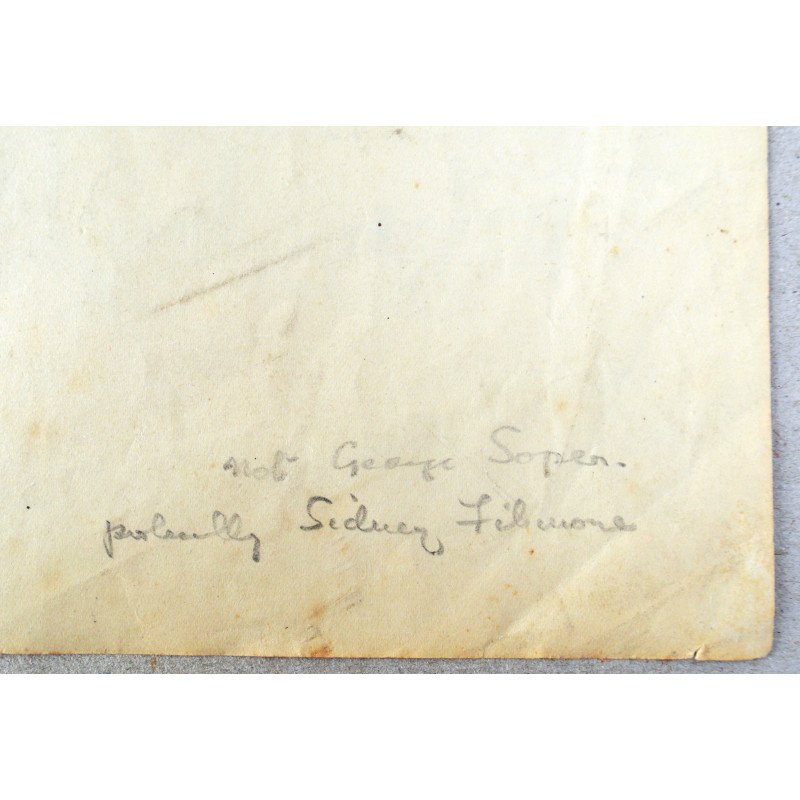 not George Soper.
probably Sidney Filmore